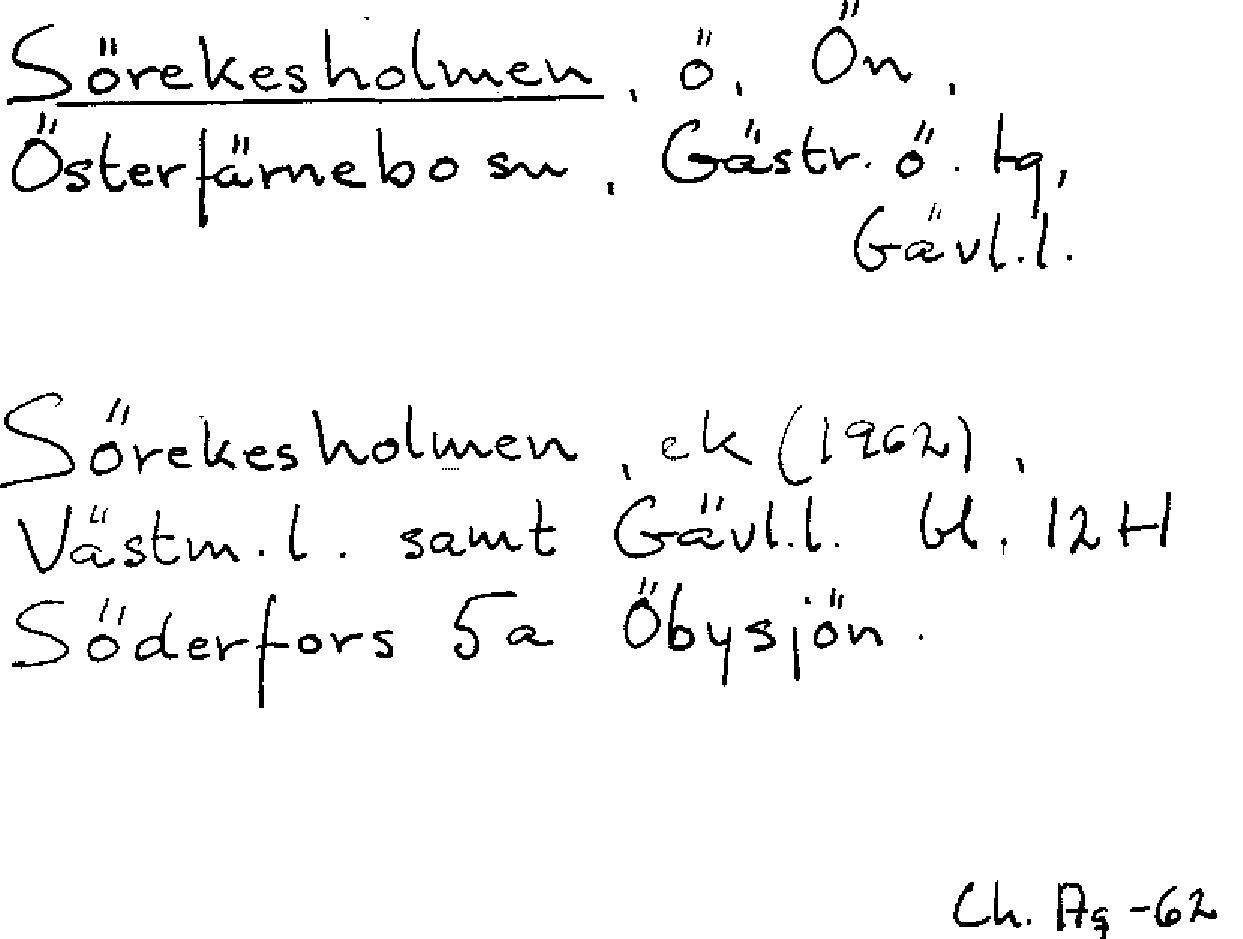 Sörekesholmen, ö, Ön,
Österfärnebo sn, Gästr. ö. tg,
Gävl.l.
Sörekesholmen, ek (1962),
Västm.l. samt Gävl.l. bl. 12H
Söderfors 5a Öbysjön.
Ch. Ag -62